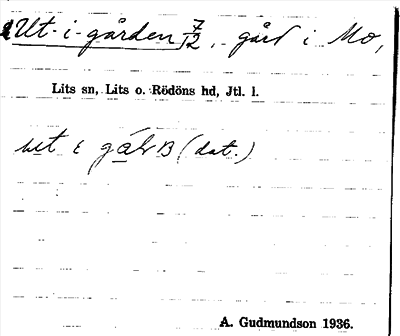 Ut-i-gården 7/12, gård i Mo,
Lits sn, Lits o. Rödöns hd, Jtl. l.
(dat.)
A. Gudmundson 1936.